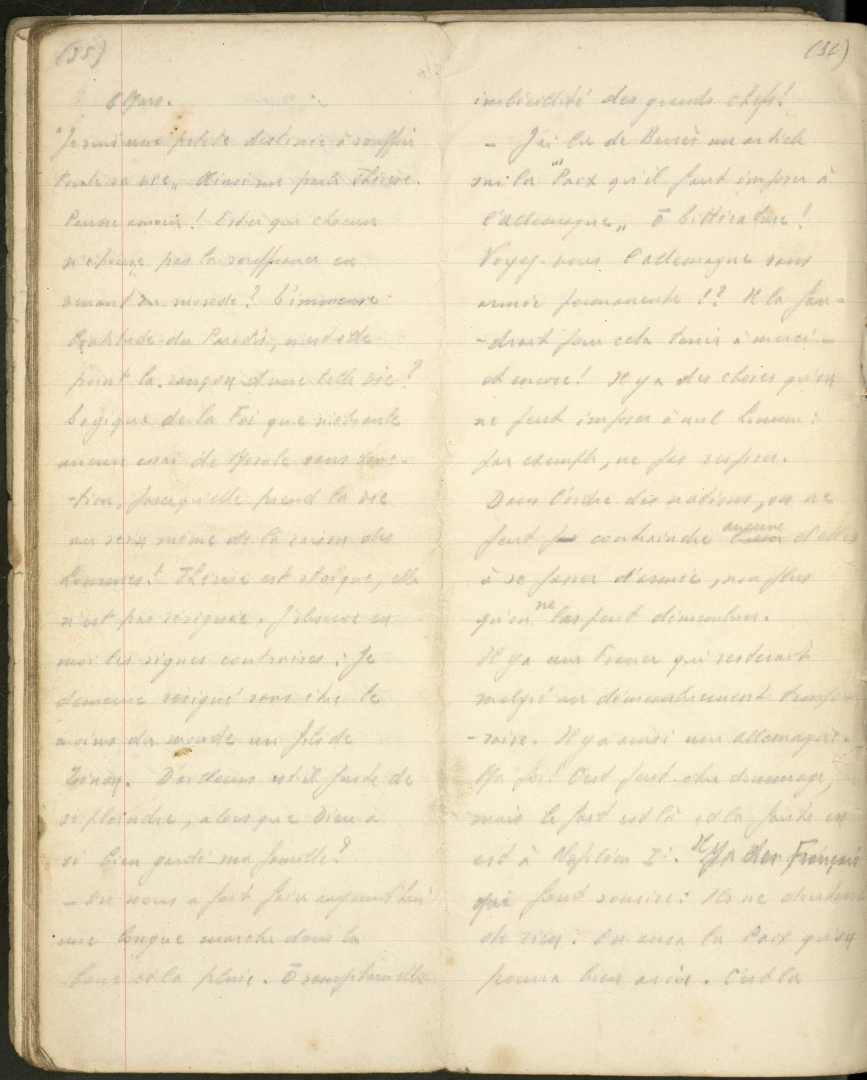 (35)
6 Mars.
"Je suis une petite destinée à souffrir
toute sa vie" Ainsi me parle Thérèse.
Pauvre amour! Est-ce que chacun
n'épuise pas la souffrance en
venant au monde? L'immense
béatitude du Paradis, n'est-elle
point la rançon d'une telle vie?
Logique de la Foi que n'ébranle
aucun essai de Morale sans sanc-
-tion, puisqu'elle prend la vie
au sein même de la raison des
hommes! Thérèse est stoïque, elle
n'est pas résignée. J'observe en
moi les signes contraires: Je
demeure résigné sans être le
moins du monde un fils de
Zénon. D'ailleurs est-il juste de
se plaindre, alors que Dieu a
si bien gardé ma famille?
- On nous a fait faire aujourd'hui
une longue marche dans la
boue et la pluie. Ô
(36)
imbécillité des grands chefs!
- J'ai lu de Barrès un article
sur la "Paix qu'il faut imposer à
l'Allemagne" Ô littérature!
Voyez-vous l'Allemagne sans
armée permanente!? Il la fau-
-drait pour cela tenir à merci -
et encore! Il y a des choses qu'on
ne peut imposer à nul homme:
par exemple, ne pas respirer.
Dans l'ordre des nations, on ne
peut pas contraindre aucune d'elles
à se passer d'armée, non plus
qu'on ne les peut démembrer.
Il y a une France qui resterait
malgré un démembrement tempo-
-raire. Il y a aussi une Allemagne.
Ma foi! C'est peut-être dommage,
mais le fait est là et la faute en
est à Napoléon Ier. Il y a des Français
qui font sourire: Ils ne doutent
de rien! On aura la Paix qu'on
pourra bien avoir. C'est la